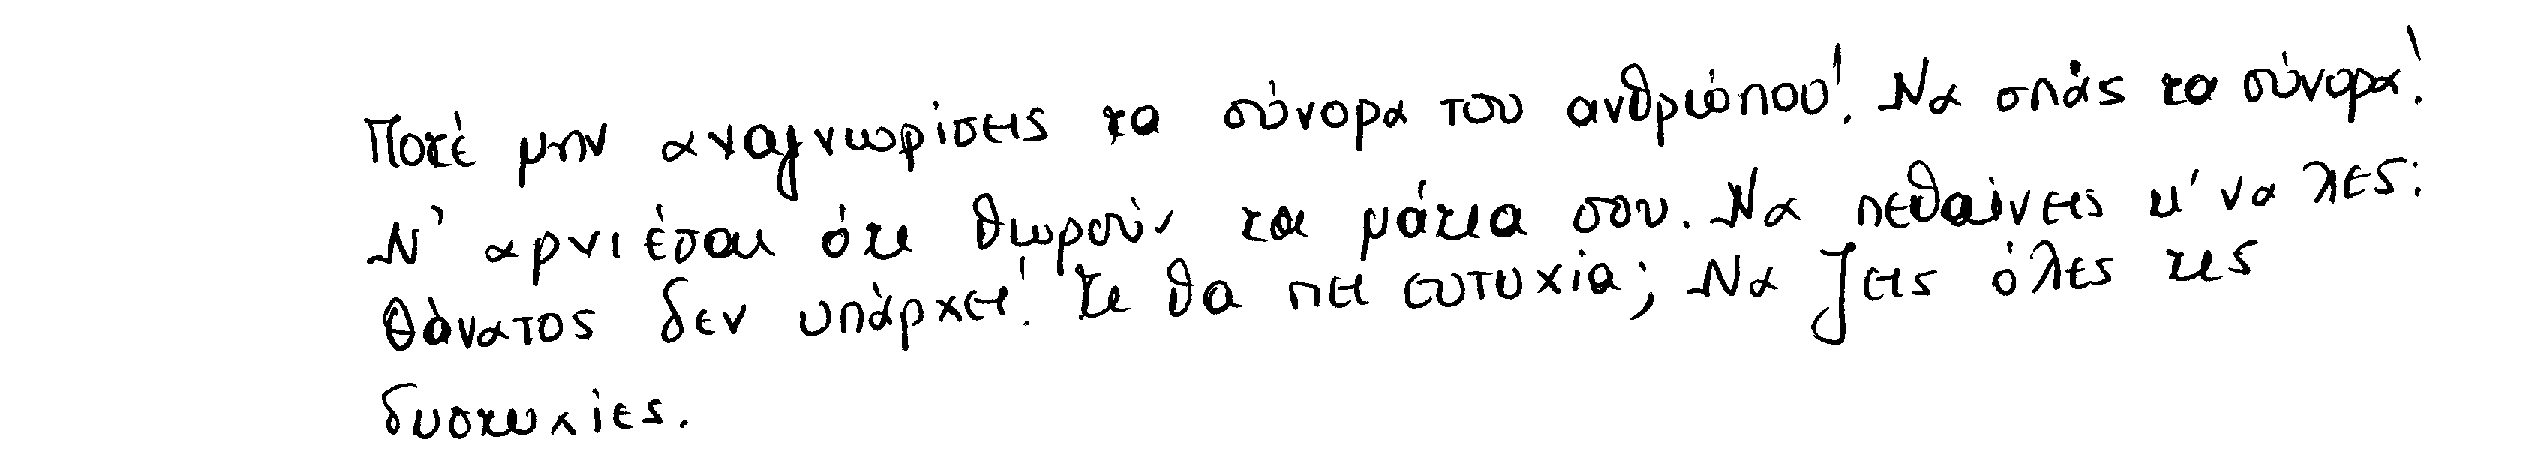 Ποτέ μην αναγνωρίσεις τα σύνορα του ανθρώπου! Να σπάς τα σύνορα!
Ν' αρνιέσαι ότι θωρούν τα μάτια σου. Να πεθαίνεις κ' να λες:
Θάνατος δεν υπάρχει! Τι θα πει ευτυχία; Να ζεις όλες τις
δυστυχίες.